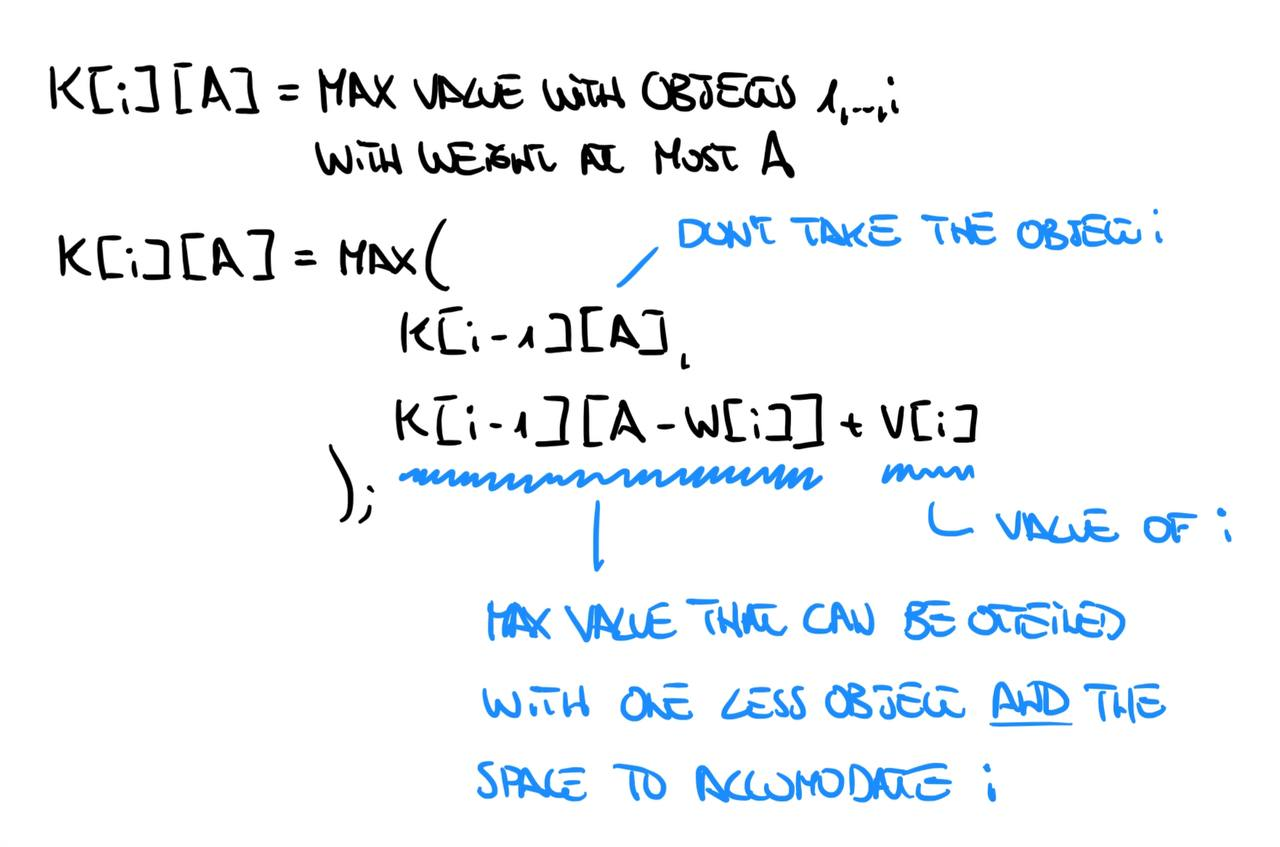 K[i][A] = MAX VALUE WITH OBJECTS 1,...,i
WITH WEIGHT AT MOST A
DON'T TAKE THE OBJECT i
K[i][A] = MAX(
K[i-1][A],
K[i-1][A-W[i]] + V[i]
);
VALUE OF i
MAX VALUE THAT CAN BE
WITH ONE LESS OBJECT AND THE
SPACE TO ACCOMODATE i